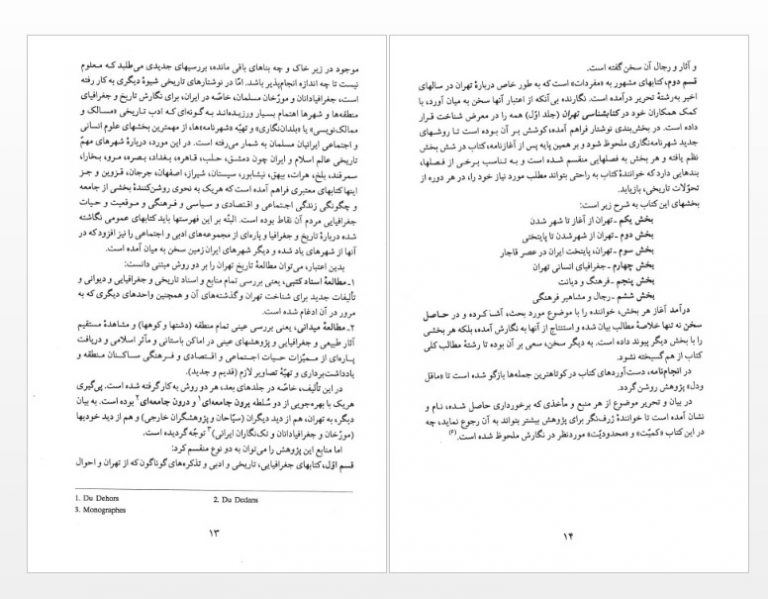 موجود در زیر خاک و چه بناهای باقی مانده، بررسیهای جدیدی می‌طلبد که معلوم
نیست تا چه اندازه انجام‌پذیر باشد. امّا در نوشتارهای تاریخی شیوهٔ دیگری به کار رفته
است، جغرافیادانان و مورّخان مسلمان، خاصّه در ایران، برای نگارش تاریخ و جغرافیای
منطقه‌ها و شهرها اهتمام بسیار ورزیده‌اند به گونه‌ای که ادب تاریخی «مسالک و
ممالک‌نویسی» یا «بلدان‌نگاری» و تهیّهٔ «شهرنامه»ها، از مهمترین بخشهای علوم انسانی
و اجتماعی ایرانیان مسلمان به شمار می‌رفته است. در این مورد، دربارهٔ شهرهای مهمّ
تاریخی عالم اسلام و ایران چون دمشق، حلب، قاهره، بغداد، بصره، مرو، بخارا،
سمرقند، بلخ، هرات، بیهق، نیشابور، سیستان، شیراز، اصفهان، جرجان، قزوین و جز
اینها کتابهای معتبری فراهم آمده است که هر یک به نحوی روشن‌کنندهٔ بخشی از جامعه
و چگونگی زندگی اجتماعی و اقتصادی و سیاسی و فرهنگی و موقعیت و حیات
جغرافیایی مردم آن نقاط بوده است. البتّه بر این فهرستها باید کتابهای عمومی نگاشته
شده دربارهٔ تاریخ و جغرافیا و پاره‌ای از مجموعه‌های ادبی و اجتماعی را نیز افزود که در
آنها از شهرهای یاد شده و دیگر شهرهای ایران زمین سخن به میان آمده است.
بدین اعتبار، می‌توان مطالعهٔ تاریخ تهران را بر دو روش مبتنی دانست:
۱ـ مطالعهٔ اسناد کتبی، یعنی بررسی تمام منابع و اسناد تاریخی و جغرافیایی و دیوانی و
تألیفات جدید برای شناخت تهران و گذشته‌های آن و همچنین واحدهای دیگری که به
مرور در آن ادغام شده است.
۲ـ مطالعهٔ میدانی، یعنی بررسی عینی تمام منطقه (دشتها و کوهها) و مشاهدهٔ مستقیم
آثار طبیعی و جغرافیایی و پژوهشهای عینی در اماکن باستانی و مآثر اسلامی و دریافت
پاره‌ای از ممیّزات حیات اجتماعی و اقتصادی و فرهنگی ساکنان منطقه و
یادداشت‌برداری و تهیّهٔ تصاویر لازم (قدیم و جدید).
در این تألیف، خاصّه در جلدهای بعد، هر دو روش به کار گرفته شده است. پی‌گیری
هریک با بهره‌جویی از دو سُلطه برون جامعه‌ای۱ و درون جامعه‌ای۲ بوده است. به بیان
دیگر، به تهران، هم از دید دیگران (سیّاحان و پژوهشگران خارجی) و هم از دید خودیها
(مورّخان و جغرافیادانان و تک‌نگاران ایرانی)۳ توجّه گردیده است.
اما منابع این پژوهش را می‌توان به دو نوع منقسم کرد:
قسم اوّل، کتابهای جغرافیایی، تاریخی و ادبی و تذکره‌های گوناگون که از تهران و احوال
1. Du Dehors
2. Du Dedans
3. Monographes
۱۳
و آثار و رجال آن سخن گفته است.
قسم دوم، کتابهای مشهور به «مفردات» است که به طور خاص دربارهٔ تهران در سالهای
اخیر به‌رشتهٔ تحریر درآمده است. نگارنده بی‌آنکه از اعتبار آنها سخن به میان آورد، با
کمک همکاران خود در کتابشناسی تهران (جلد اوّل) همه را در معرض شناخت قرار
داده است. در بخش‌بندی نوشتار فراهم آمده، کوشش بر آن بوده است تا روشهای
جدید شهرنامه‌نگاری ملحوظ شود و بر همین پایه پس از آغازنامه، کتاب در شش بخش
نظم یافته و هر بخش به فصلهایی منقسم شده است و به تناسب برخی از فصلها،
بندهایی دارد که خوانندهٔ کتاب به راحتی بتواند مطلب مورد نیاز خود را، در هر دوره از
تحوّلات تاریخی، بازیابد.
بخشهای این کتاب به شرح زیر است:
بخش یکم ـ تهران از آغاز تا شهر شدن
بخش دوم ـ تهران از شهرشدن تا پایتختی
بخش سوم ـ تهران، پایتخت ایران در عصر قاجار
بخش چهارم ـ جغرافیای انسانی تهران
بخش پنجم ـ فرهنگ و دیانت
بخش ششم ـ رجال و مشاهیر فرهنگی
درآمد آغاز هر بخش، خواننده را با موضوع مورد بحث، آشنا کرده و در حاصل
سخن نه تنها خلاصهٔ مطالب بیان شده و استنتاج از آنها به نگارش آمده، بلکه هر بخشی
را با بخش دیگر پیوند داده است. به دیگر سخن، سعی بر آن بوده تا رشتهٔ مطالب کلی
کتاب از هم گسیخته نشود.
در انجام‌نامه، دست‌آوردهای کتاب در کوتاهترین جمله‌ها بازگو شده است تا «ماقل
ودل» پژوهش روشن گردد.
در بیان و تحریر موضوع از هر منبع و مأخذی که برخورداری حاصل شده، نام و
نشان آمده است تا خوانندهٔ ژرف‌نگر برای پژوهش بیشتر بتواند به آن رجوع نماید، چه
در این کتاب «کمیّت» و «محدودیّت» موردنظر در نگارش ملحوظ شده است.(۶)
۱۴